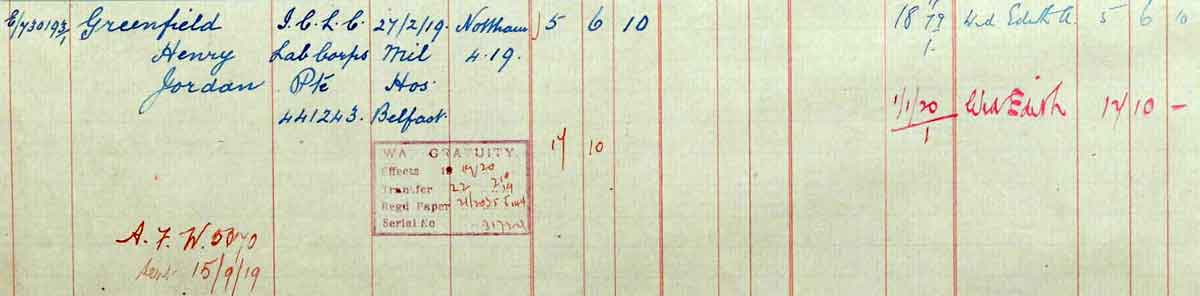 E/730193/1 Greenfield I.C.L.C. 27/2/19 5 6 10 18 79 Wid Edith A 5 6 10
Henry Lab Corps Mil 4.19. 1.
Jordan Pte Hos
441243. Belfast
1/1/20 Wid Edith 17 10 -
1
17 10
WAR GRATUITY
Effects
Transfer 22
Regd Paper
Serial No
A. F. W. 5070
Sent 15/9/19